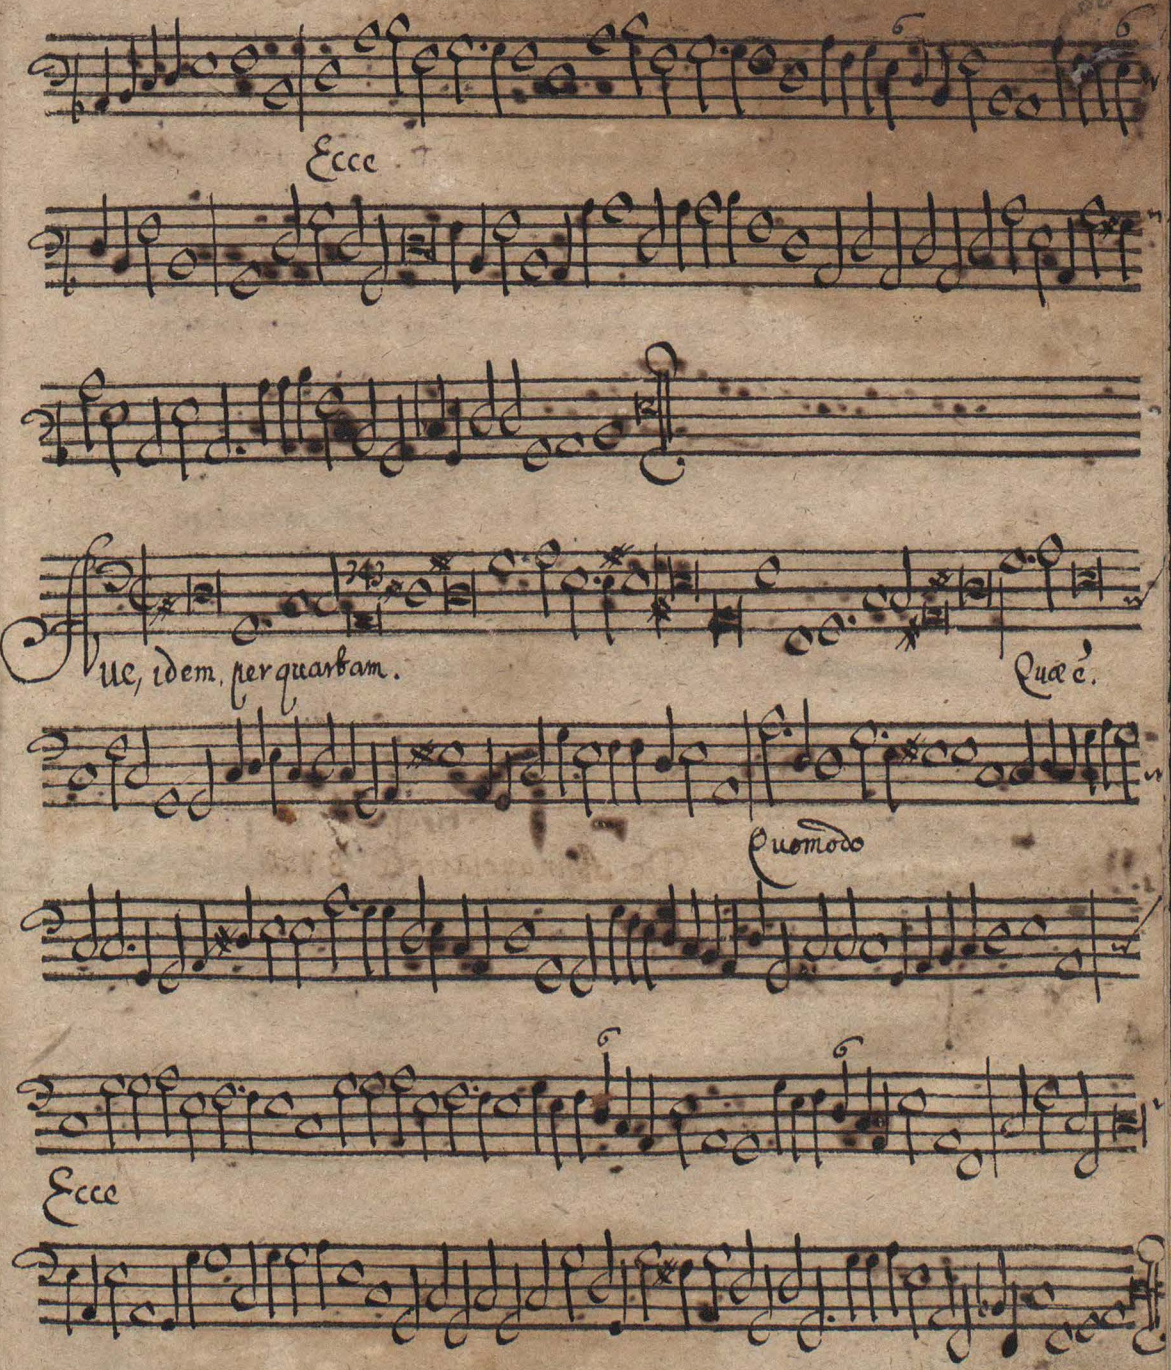 6 6
Ecce
343
Sive, idem, per quartam. Quæ è.
Quomodo
6 6
Ecce